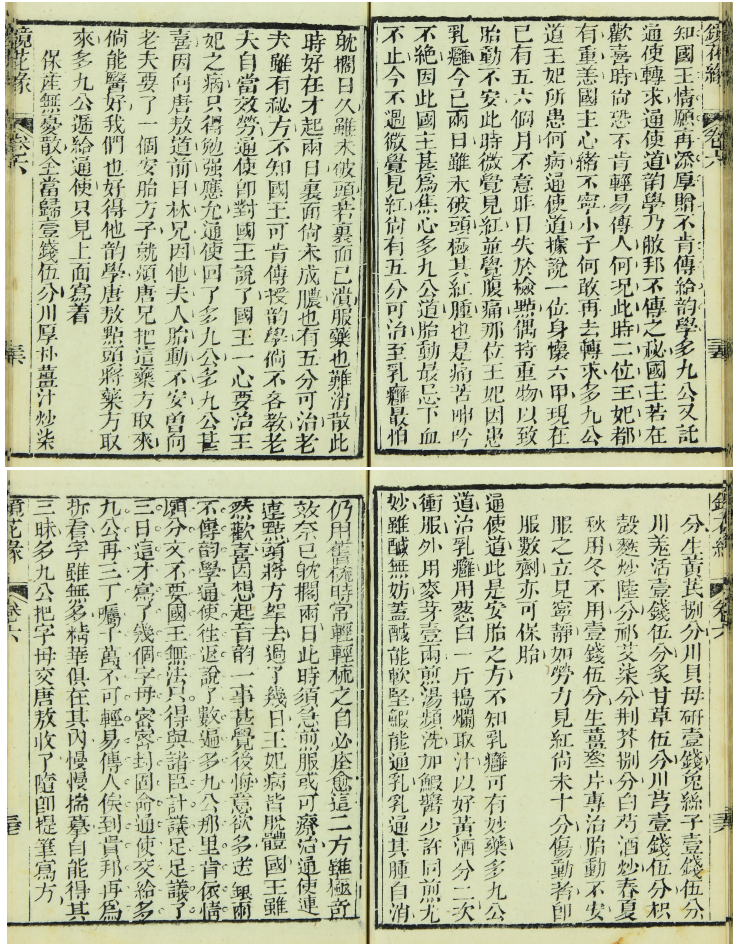 鏡花緣
卷六
知國王情願再添厚贈不肯傳給韵學多九公又託
通使轉求通使道韵學乃敝邦不傳之秘國主若在
歡喜時尚恐不肯輕易傳人何况此時二位王妃都
有重恙國主心緒不寧小子何敢再去轉求多九公
道王妃所患何病通使道據說一位身懷六甲現在
已有五六個月不意昨日失於檢㸃偶持重物以致
胎動不安此時微覺見紅並覺腹痛那位王妃因患
乳癰今已兩日雖未破頭極其紅腫也是痛苦呻吟
不絕因此國主甚爲焦心多九公道胎動最忌下血
不止今不過微覺見紅尚有五分可治至乳癰最怕
耽擱日久雖未破頭若裏面已潰服藥也難消散此
時好在才起兩日裏面尚未成膿也有五分可治老
夫雖有秘方不知國王可肯傳授韵學倘不吝教老
夫自當效勞通使卽對國王說了國王一心要治王
妃之病只得勉强應允通使回了多九公多九公甚
喜因向唐敖道前日林兄因他夫人胎動不安曾向
老夫要了一個安胎方子就煩唐兄把這藥方取來
倘能醫好我們也好得他韵學唐敖㸃頭將藥方取
來多九公遞給通使只見上面寫着
保産無憂散全當歸壹錢伍分川厚朴薑汁炒柒
鏡花緣
卷六
鏡花緣
卷六
分生黃芪捌分川貝母研壹錢兔絲子壹錢伍分
川羗活壹錢伍分炙甘草伍分川芎壹錢伍分枳
殼麩炒陸分祁艾柒分荆芥捌分白芍酒炒春夏
秋用冬不用壹錢伍分生薑叁片專治胎動不安
服之立見寧靜如勞力見紅尚未十分傷動者卽
服數劑亦可保胎
通使道此是安胎之方不知乳癰可有妙藥多九公
道治乳癰用葱白一斤搗爛取汁以好黃酒分二次
衝服外用麥芽壹兩煎湯頻洗加鰕醬少許同煎尤
妙雖鹹無妨蓋鹹能軟堅鰕能通乳乳通其腫自消
仍用舊梳時常輕輕梳之自必痊愈這二方雖極奇
效奈已躭擱兩日此時須急煎服或可療治通使連
連㸃頭將方拏去過了幾日王妃病皆脫體國王雖
然歡喜因想起音韵一事甚覺後悔意欲多送銀兩
不傳韵學通使往返說了數遍多九公那里肯依情
願分文不要國王無法只得與諸臣計議足足議了
三日這才寫了幾個字母密密封固命通使交給多
九公再三丁囑千萬不可輕易傳人俟到貴邦再爲
拆看字雖無多精華俱在其內慢慢揣摹自能得其
三昧多九公把字母交唐敖收了隨卽提筆寫方
鏡花緣
卷六